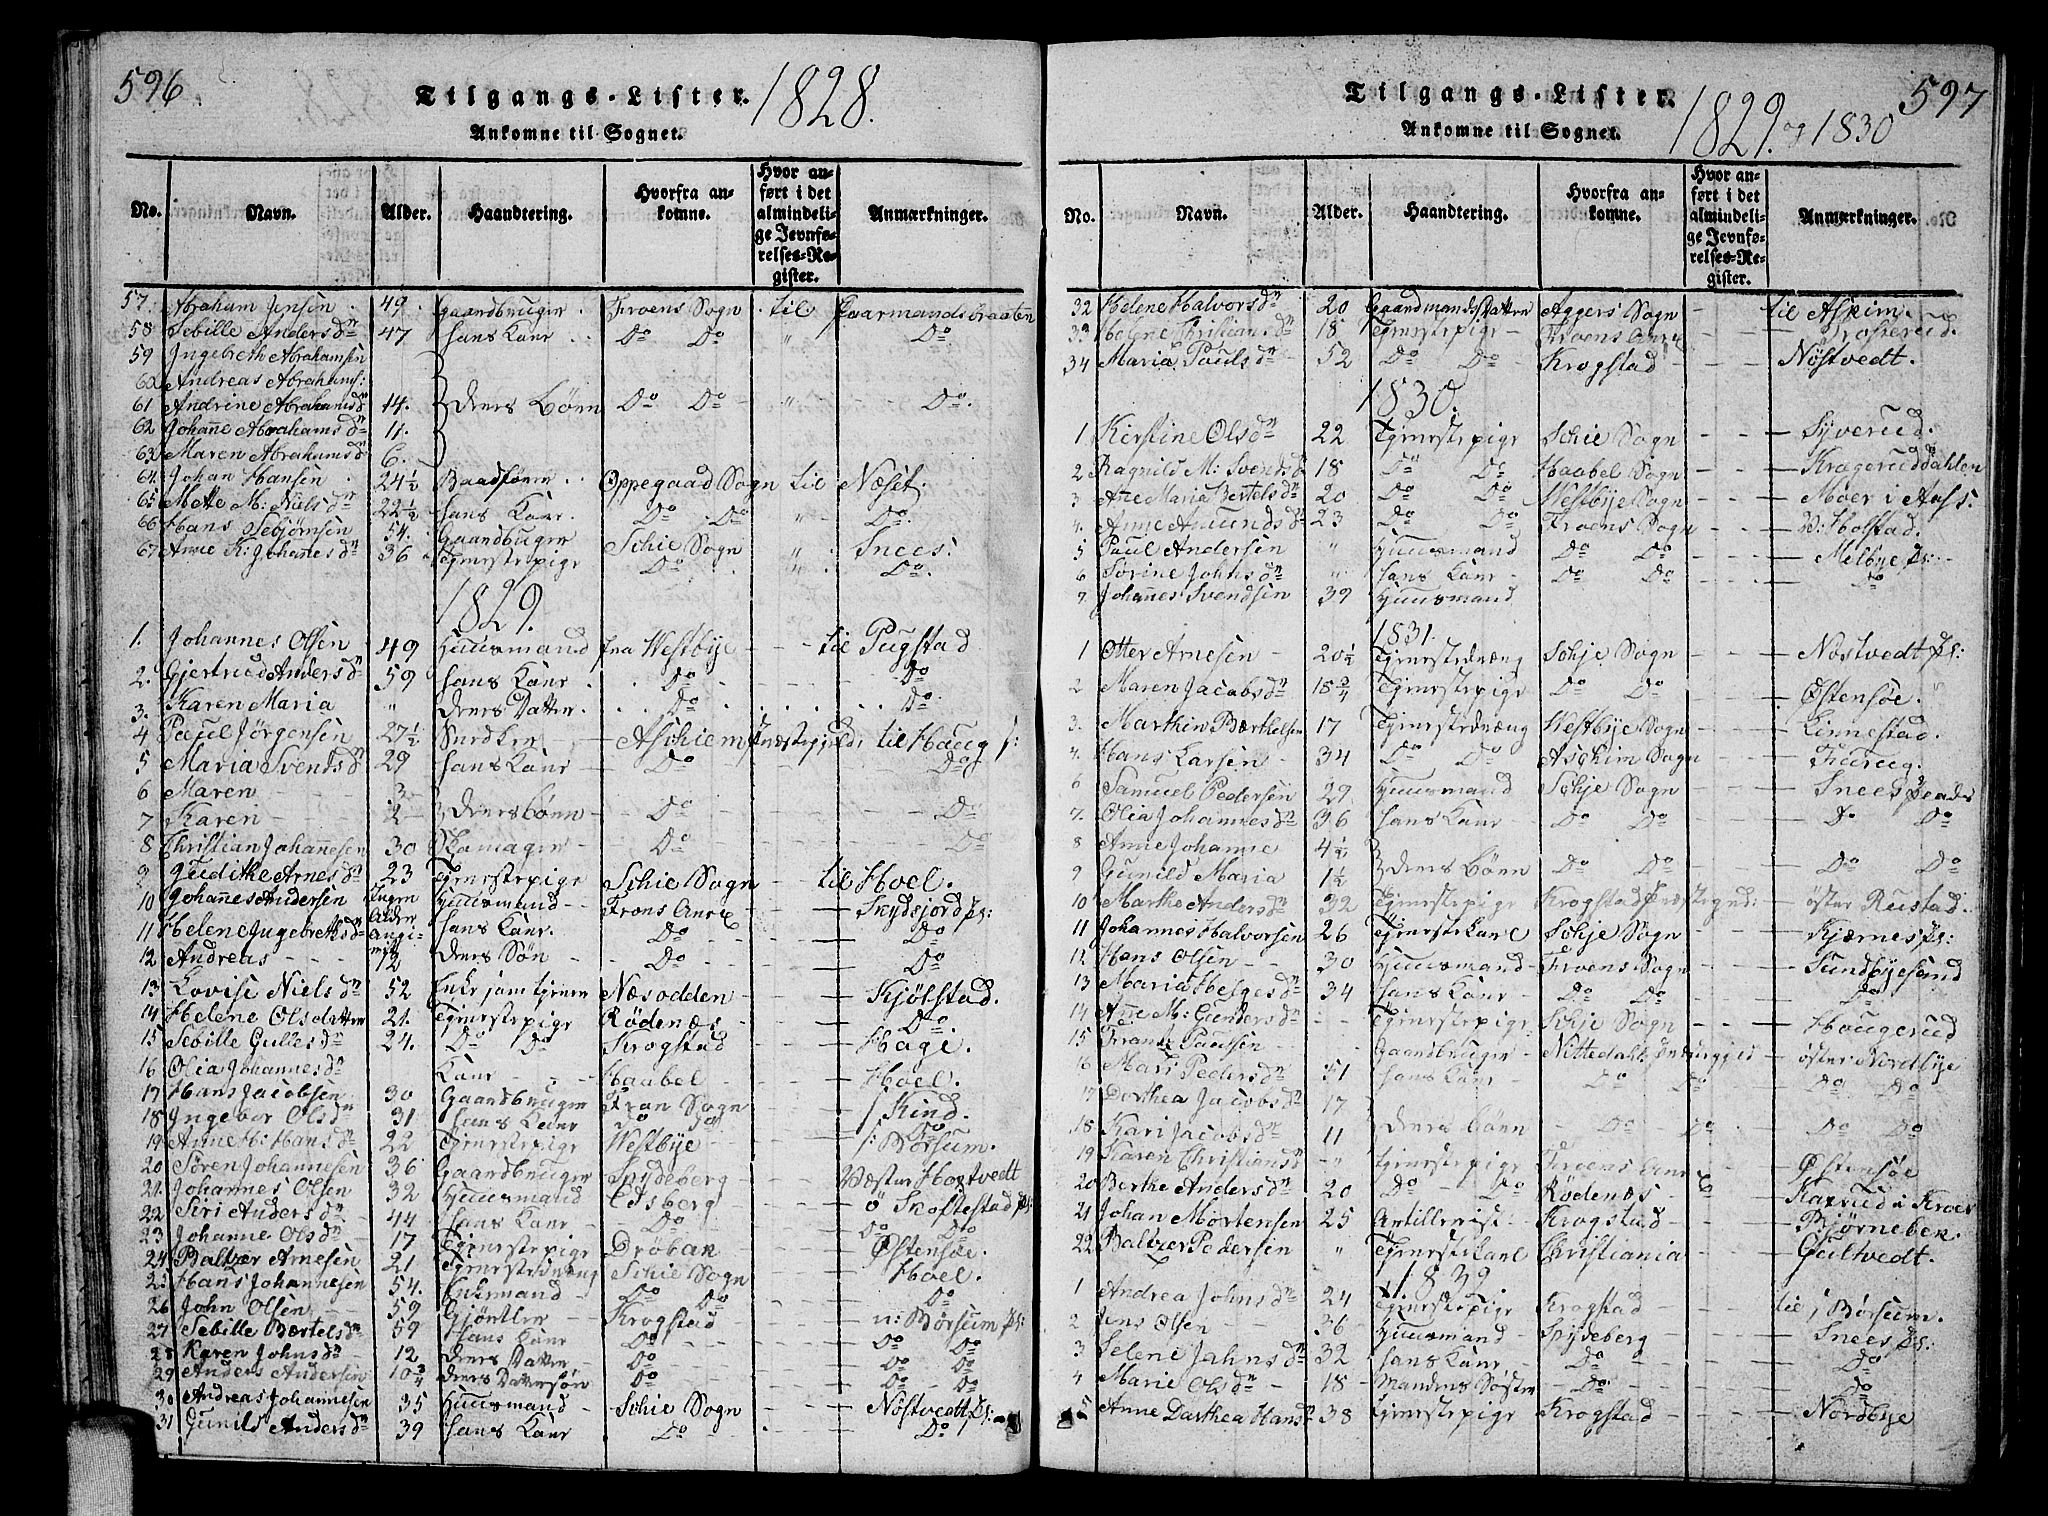 596
Tilgangs-Lister. 1828.
Ankomne til Sognet.
No. Navn. Alder. Haandtering. Hvorfra ankomne. Hvor anført i det almindelige Jevnførelses-Register. Anmærkninger.
57. Abraham Jensen 49 Gaardbruger Froens Sogn til
58 Sebille Andersdr 47 hans Kone Do Do " Do
59 Ingebreth Abrahamsen
60 Andreas Abrahams:
61 Andrine Abrahamsdr 14. deres Børn Do Do " Do.
62 Johanne Abrahamsdr 11.
63 Maren Abrahamsdr 6.
64 Johan Hansen 24½ Oppegaad Sogn til Næset.
65 Mette M: Nielsdr 22½ hans Kone. Do Do " Do
66 Hans 54. Gaardbruger Schie Sogn " Snees:
67 Anne K: Johanesdr 36 Tjenestepige Do " Do.
1829.
1. Johannes Olsen 49 Huusmand fra Westbye til Pugstad
2. Gjertrud Andersdr 59 hans Kone Do Do
3. Karen Maria " deres Datter Do Do
4 Paul Jørgensen 27½ Snedker Aschiem til Haug s:
5 Maria Svendsdr 29 hans Kone Do Do
6 Maren 3
7 Karen 2 deres børn Do Do
8 Christian Johannesen 30 Skomager Do Do
9 Judithe Arnesdr 23 Tjenestepige Schie Sogn til Hoel.
10 Johannes Andersen Ingen Alder Angivet Huusmand Frons Anex
11 Helene Ingebrethsdr hans Kone. Do Do
12 Andreas 12 deres Søn Do Do
13 Lovise Nielsdr 52 Enke som tjener Næsodden Kjølstad.
14 Helene Olsdatter 21. Tjenestepige Rødenæs Do.
15 Sebille Gullesdr 24. Do Do Krogstad Hage.
16 Olia Johannesdr Kone Haabel Hoel.
17 Hans Jacobsen 30 Gaardbruger Fron Sogn Kind.
18 Ingebor Olsdr 31 hans Kone Do Do Do
19 Anne H: Hansdr 22 Tjenestepige Westbye s: Børsum.
20 Søren Johannesen 36 Gaardbruger Spydeberg
21. Johannes Olsen 32 Huusmand Edsberg ø Skoftestad ps:
22 Siri Andersdr 44 hans Kone Do Do Do
23 Johanne Olsdr 17. Tjenestepige Drøbak Østensøe.
24 Baltzer Arnesen 21 Tjenestedræng Schie Sogn Hoel.
25 Hans Johannesen 54. Enkemand Do Do Do
26 John Olsen 59 Krogstad n: Børsum ps:
27 Sebille Bærtelsdr 59 hans Kone Do Do Do
28 Karen Johnsdr 12 deres Datter Do Do Do
29 Anders Andersen 10¾ deres Dattersøn Do Do Do
30 Andreas Johannesen 35 Huusmand Schie Sogn Nøstvedt ps:
31 Gunild Andersdr 39 hans Kone Do Do
597
Tilgangs-Lister. 1829. og 1830
Ankomne til Sognet.
No. Navn. Alder. Haandtering. Hvorfra ankomne. Hvor anført i det almindelige Jevnførelses-Register. Anmærkninger.
32 Helene Halvorsdr 20 Gaardmandsdatter Aggers Sogn til Askim.
33 Helene Christiansdr 18 Tjenestepige Froens Anex
34 Maria Paulsdr 52 Do Do Krogstad Nøstvedt.
1830.
1 Kirstine Olsdr 22 Tjenestepige Schie Sogn Syverud.
2 Ragnild M: Svendsdr 18 Do Do Haabel Sogn Krægeruddahlen
3 Ane Maria Bertelsdr 20 Do Do Westbye Sogn Moer i Aas:
4. Anne Amundsdr 23 Do Do Froens Sogn W: Holstad.
5 Paul Andersen " Huusmand Do Do Melbye ps:
6 Sørine Johnsdr " hans Kone Do Do Do
7. Johannes Svendsen 39 Huusmand
1831.
1 Otter Arnesen 20½ Tjenestedræng Schje Sogn Nøstvedt ps:
2 Maren Jacobsdr 18¾ Tjenestepige Do Do Østensøe
3. Marthin Bærthelsen 17 Tjenestedræng Westbye Sogn Kinnestad.
4. Hans Larsen 34 Do Do Aschim Sogn
6 Samuel Pedersen 29 Huusmand Schje Sogn Snees
7. Olia Johannesdr 36 hans Kone Do Do Do Do
8 Anne Johanne 4½
9 Gunild Maria 1½ deres Børn Do Do Do Do
10 Marthe Andersdr 32 Tjenestepige Krogstad Præstegield: øster Rustad.
11 Johannes Halvorsen 26 Tjenestekarl Schje Sogn Kjærnes ps:
12 Hans Olsen 30 Huusmand Froens Sogn Sundbyesand
13 Maria Helgesdr 34 hans Kone Do Do Do
14 Anne M: Gundersdr Tjenestepige Schje Sogn Haugerud
15 Gaardbruger Nittedahls øster Nordbye
16 Mari Pedersdr 51 hans Kone Do Do Do Do
17 Dorthea Jacobsdr 17
18 Kari Jacobsdr 11 deres Børn Do Do Do Do
19 Karen Christiansdr " Tjenestepige Froens Anex Østensøe
20 Berthe Andersdr 20 Do Do Rødenæs Kaxrud i Kroer
21 Johan Mortensen 25 Artillerist Krogstad Bjørnebek.
22 Baltzer Pedersen " Tjenestekarl Christiania Gultvedt.
1832.
1 Andrea Johnsdr 24 Tjenestepige Krogstad til s: Børsum.
2 Jens Olsen 36 Huusmand Spydeberg Snees ps:
3 Selene Jahnsdr 32 hans Kone Do Do
4 Marie Olsdr 18 Mandens Søster Do Do
5 Anne Darthea Hansdr 38 Tjenestepige Krogstad Nordbye